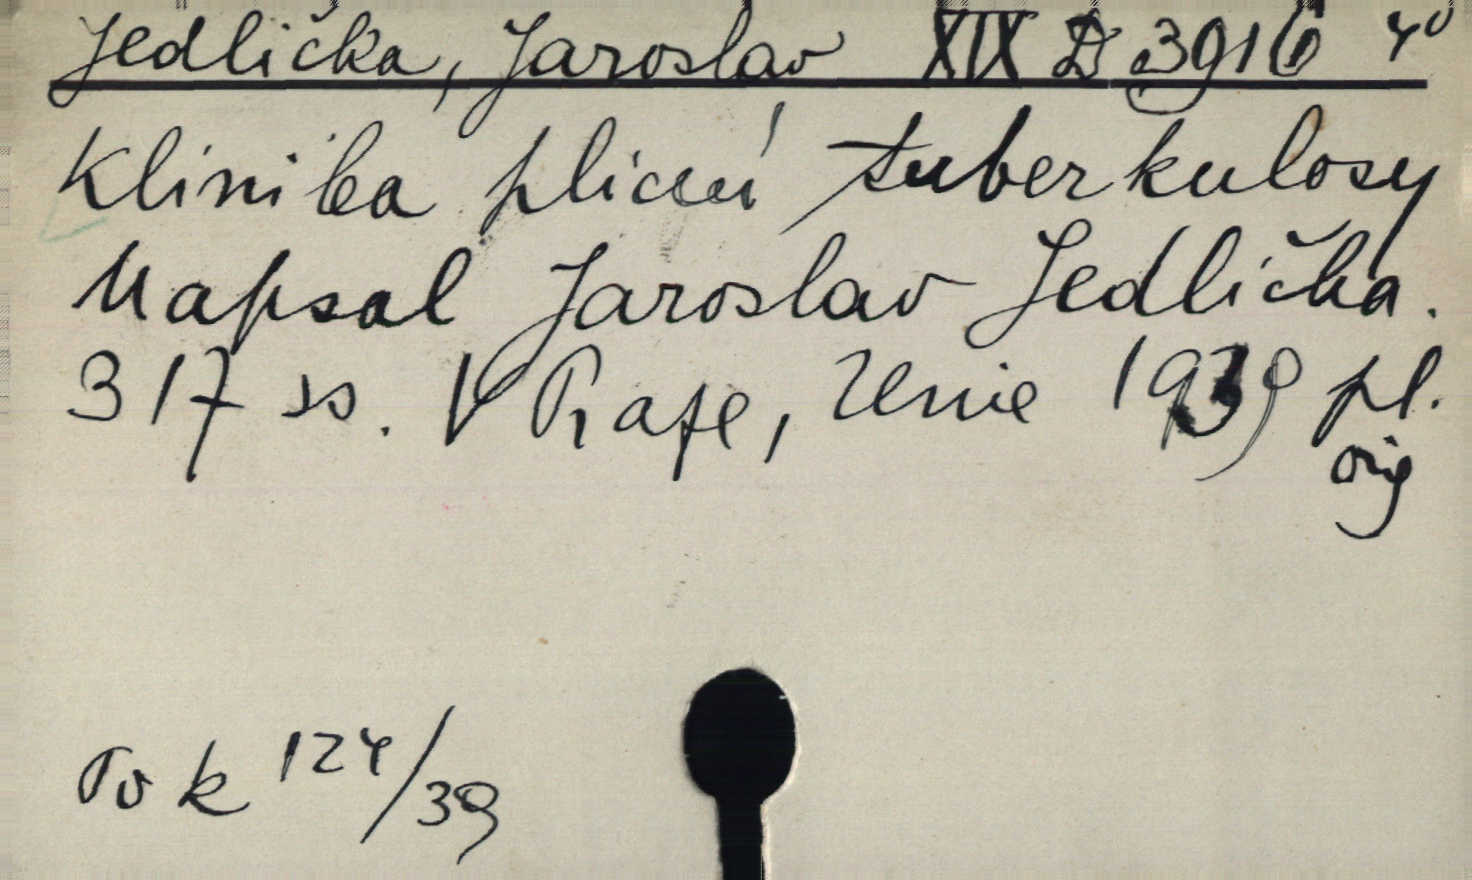 Jedlička, Jaroslav XIX D 3916 4°
Klinika plicní tuberkulosy
Napsal Jaroslav Jedlička.
317 ss. V Praze, Unie 1939 pl.
orig
Tv k 124/39